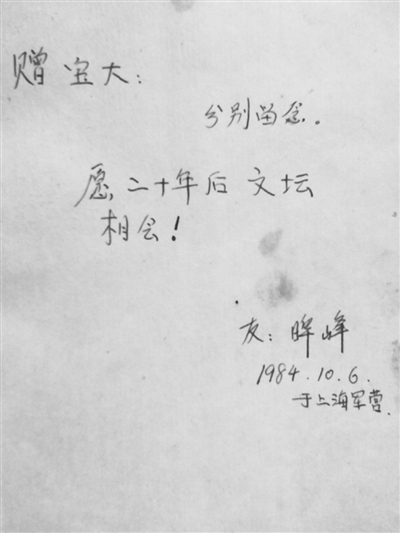 赠 宝大：
分别留念。
愿二十年后文坛
相会！
友：晖峰
1984.10.6.
于上海军营.